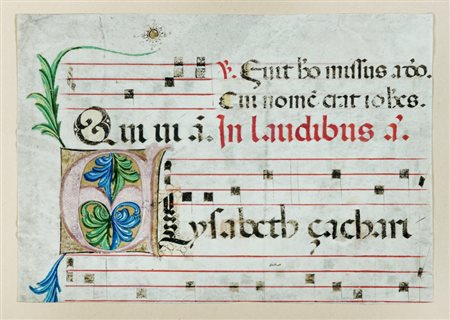 ℣. Fuit hō missus a dō.
Cui nomē erat iohēs.
Qui ui ā. In laudibus ā.
Elysabeth çachari